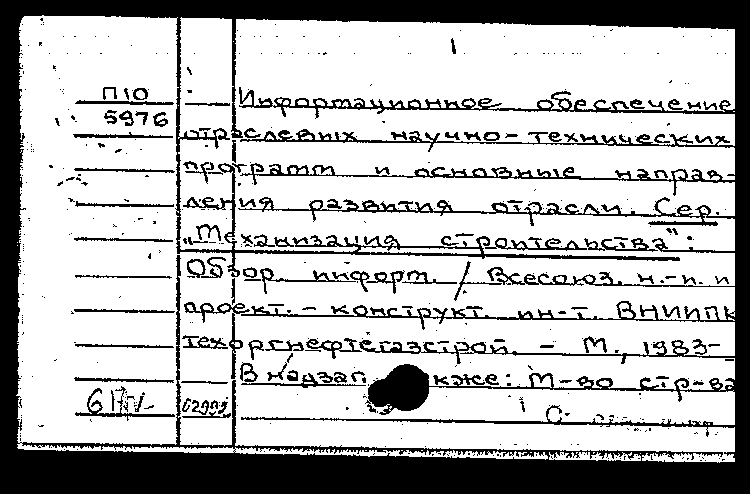 П10
5976
Информационное обеспечение
отраслевых научно-технических
программ и основные направ-
ления развития отрасли. Сер.
„Механизация строительства":
Обзор. информ. / Всесоюз. н.-и. и
проект.-конструкт. ин-т. ВНИИПК
техоргнефтегазстрой. - М., 1983-
В надзаг кже: М-во стр-ва
62992 С.